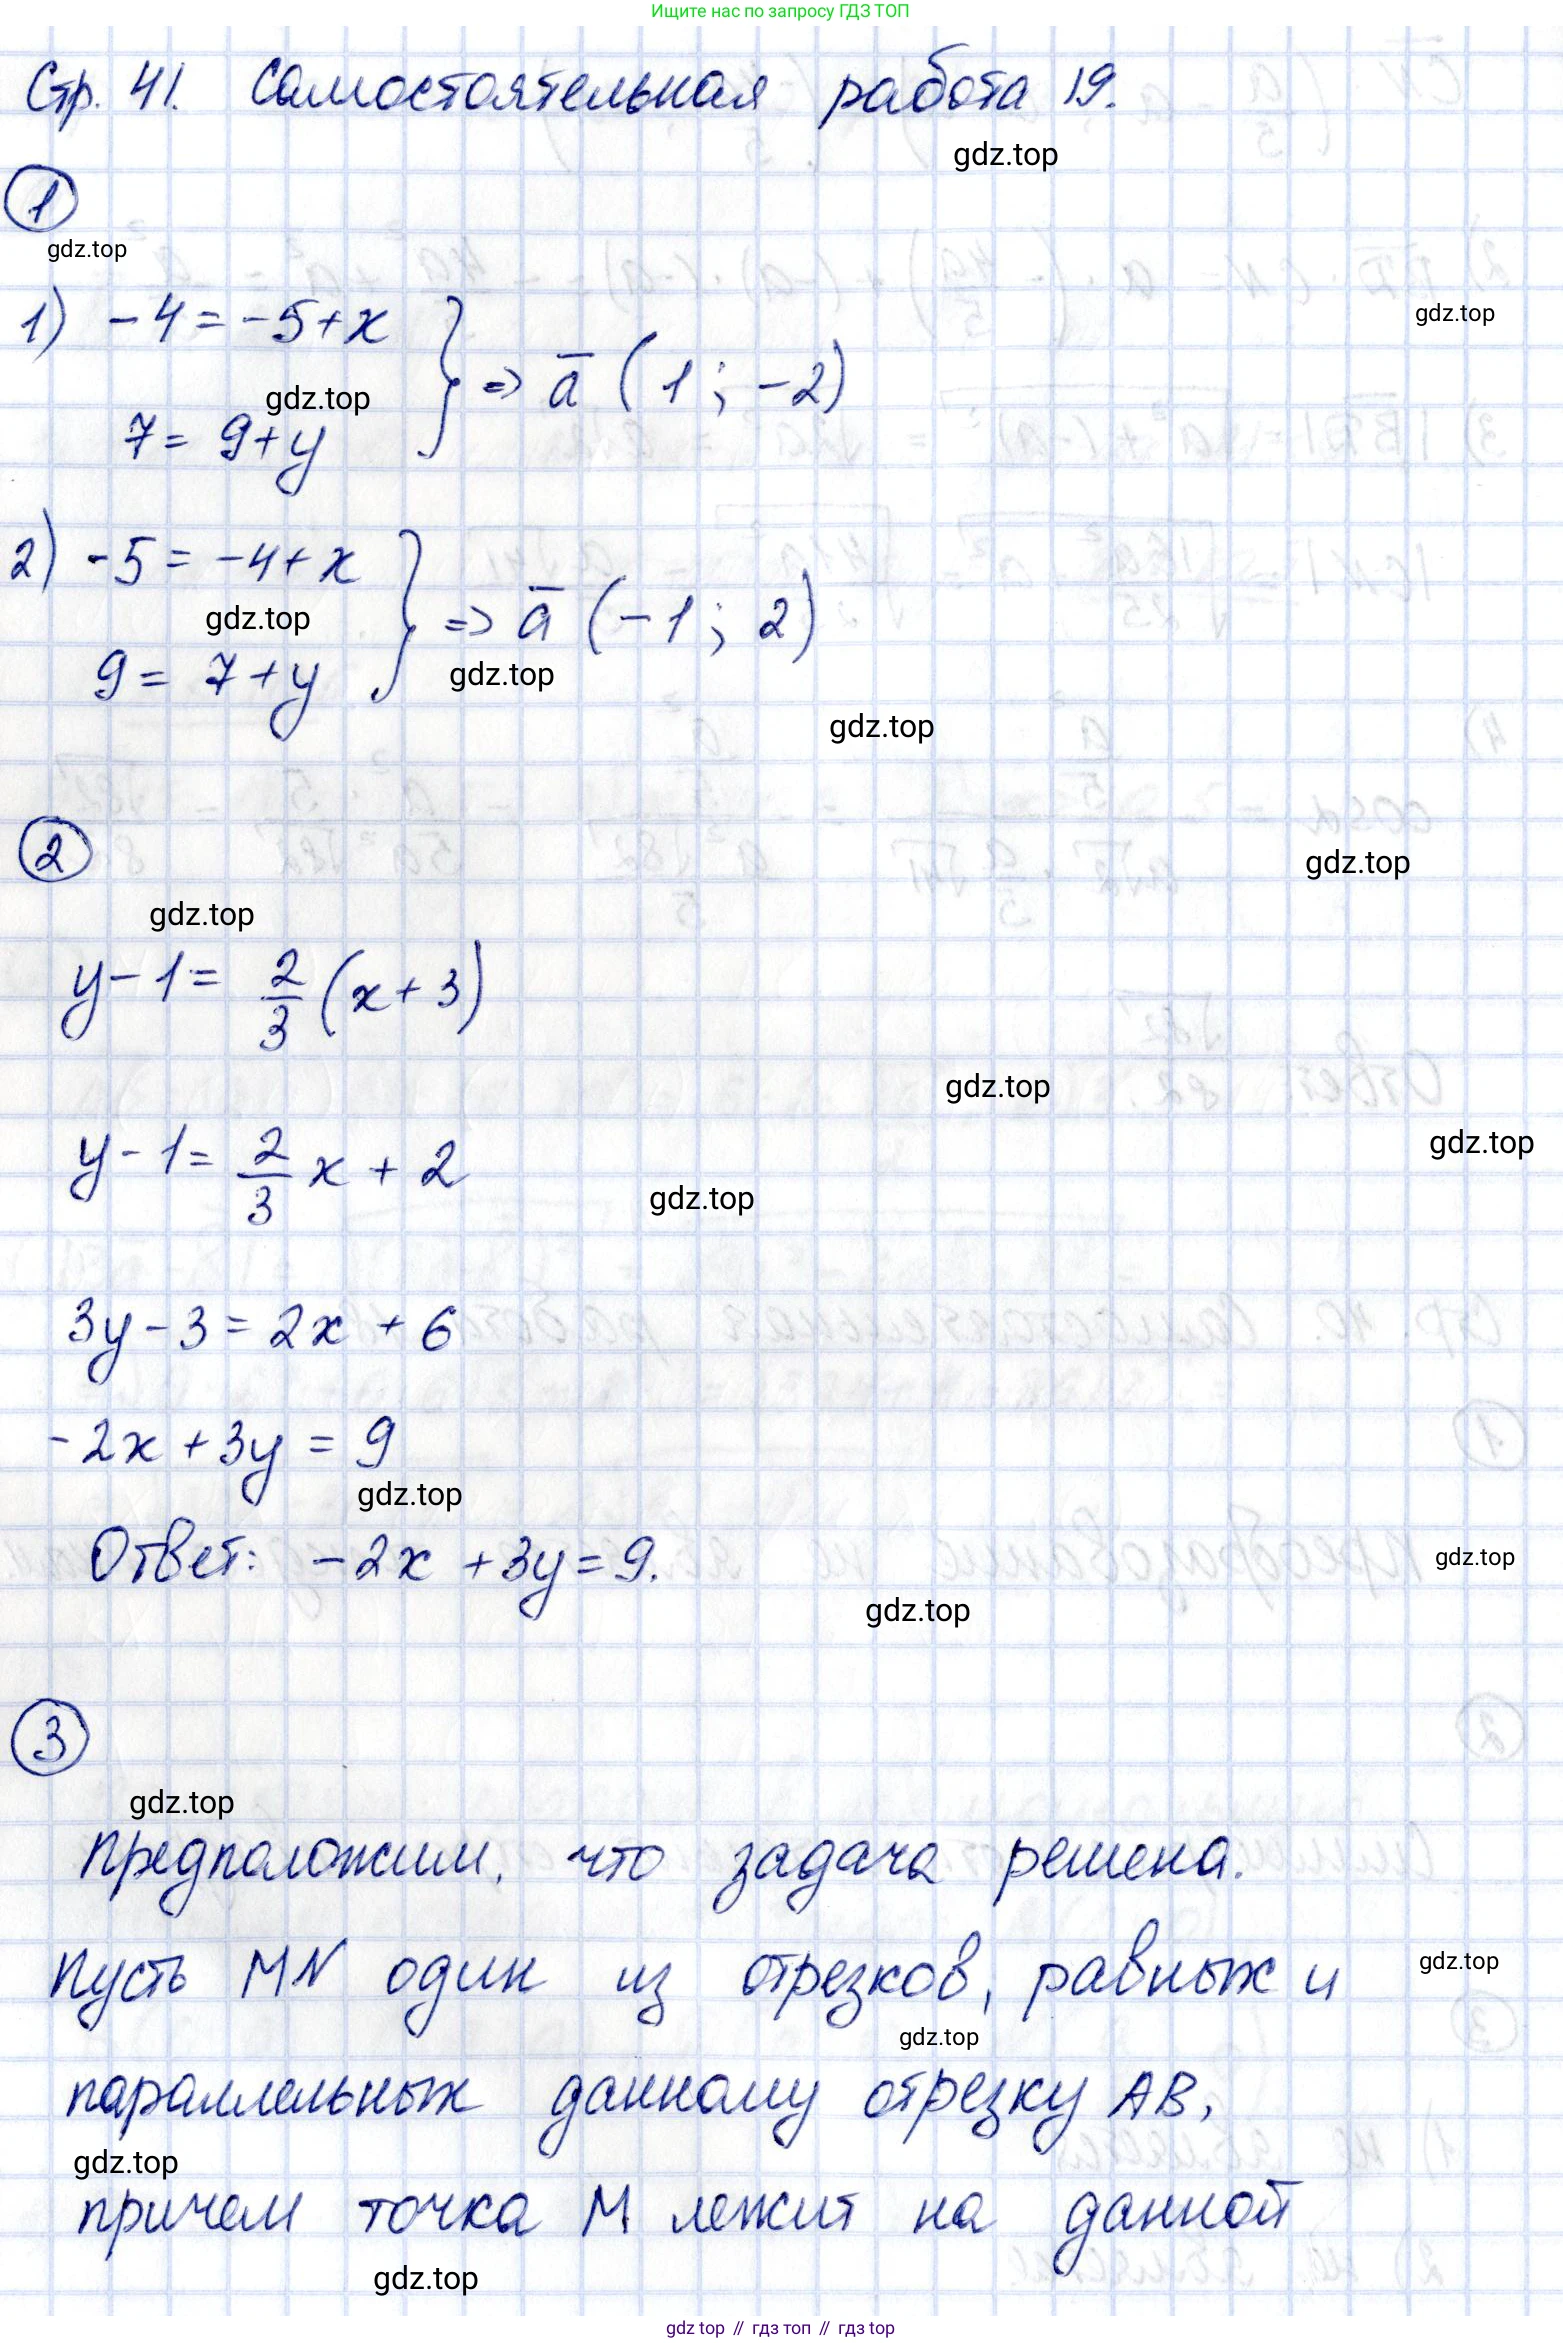 Ищите нас по запросу ГДЗ ТОП
Стр. 41. Самостоятельная работа 19.
gdz.top
1
gdz.top
1) -4 = -5 + x
gdz.top
} => a̅ (1; -2)
gdz.top
7 = 9 + y
2) -5 = -4 + x
gdz.top
} => a̅ (-1; 2)
9 = 7 + y
gdz.top
gdz.top
2
gdz.top
gdz.top
y - 1 = 2/3 (x + 3)
gdz.top
gdz.top
y - 1 = 2/3 x + 2
gdz.top
3y - 3 = 2x + 6
-2x + 3y = 9
gdz.top
Ответ: -2x + 3y = 9.
gdz.top
gdz.top
3
gdz.top
Предположим, что задача решена.
Пусть MN один из отрезков, равных и
gdz.top
gdz.top
параллельных данному отрезку AB,
gdz.top
причем точка M лежит на данной
gdz.top
gdz.top // гдз топ // гдз top